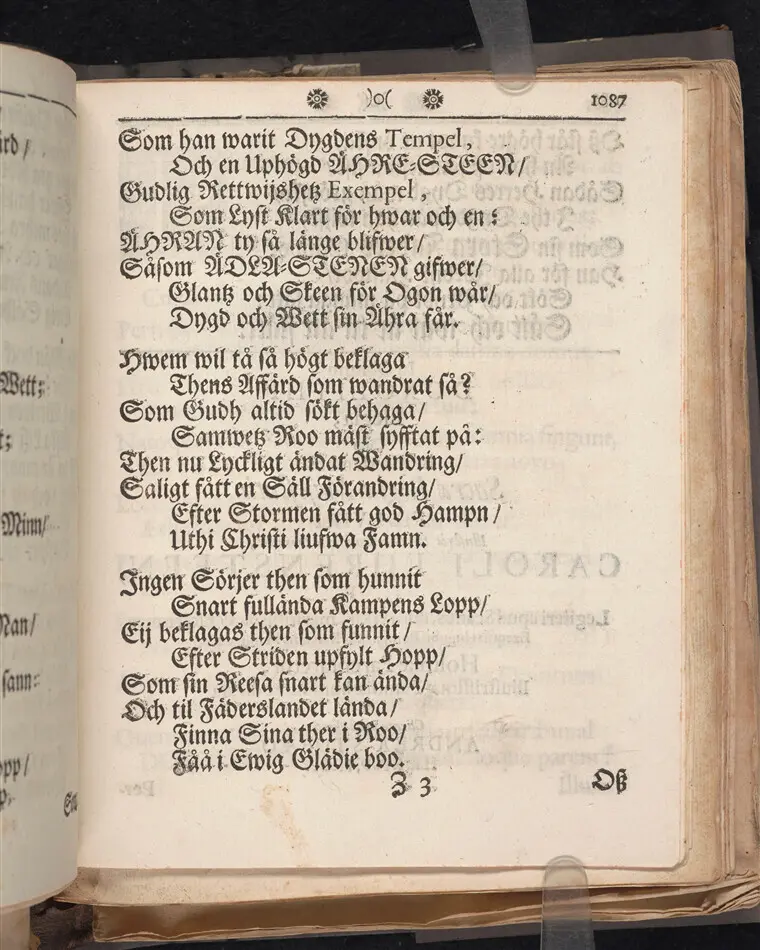 ❋ )o( ❋ 1087
Som han warit Dygdens Tempel,
Och en Uphögd ÄHRE-STEEN/
Gudlig Rettwijshetz Exempel,
Som Lyst Klart för hwar och en:
ÄHRAN ty så länge blifwer/
Såsom ÄDLA-STENEN gifwer/
Glantz och Skeen för Ogon wår/
Dygd och Wett sin Ähra får.
Hwem wil tå så högt beklaga
Thens Affärd som wandrat så?
Som Gudh altid sökt behaga/
Samwetz Roo mäst syfftat på:
Then nu Lyckligt ändat Wandring/
Saligt fått en Säll Förandring/
Efter Stormen fått god Hampn/
Uthi Christi liufwa Famn.
Ingen Sörjer then som hunnit
Snart fullända Kampens Lopp/
Eij beklagas then som funnit/
Efter Striden upfylt Hopp/
Som sin Reesa snart kan ända/
Och til Fäderslandet lända/
Finna Sina ther i Roo/
Fåå i Ewig Glädie boo.
Z 3 Oß
Wett;
Minn/
Man/
sann-